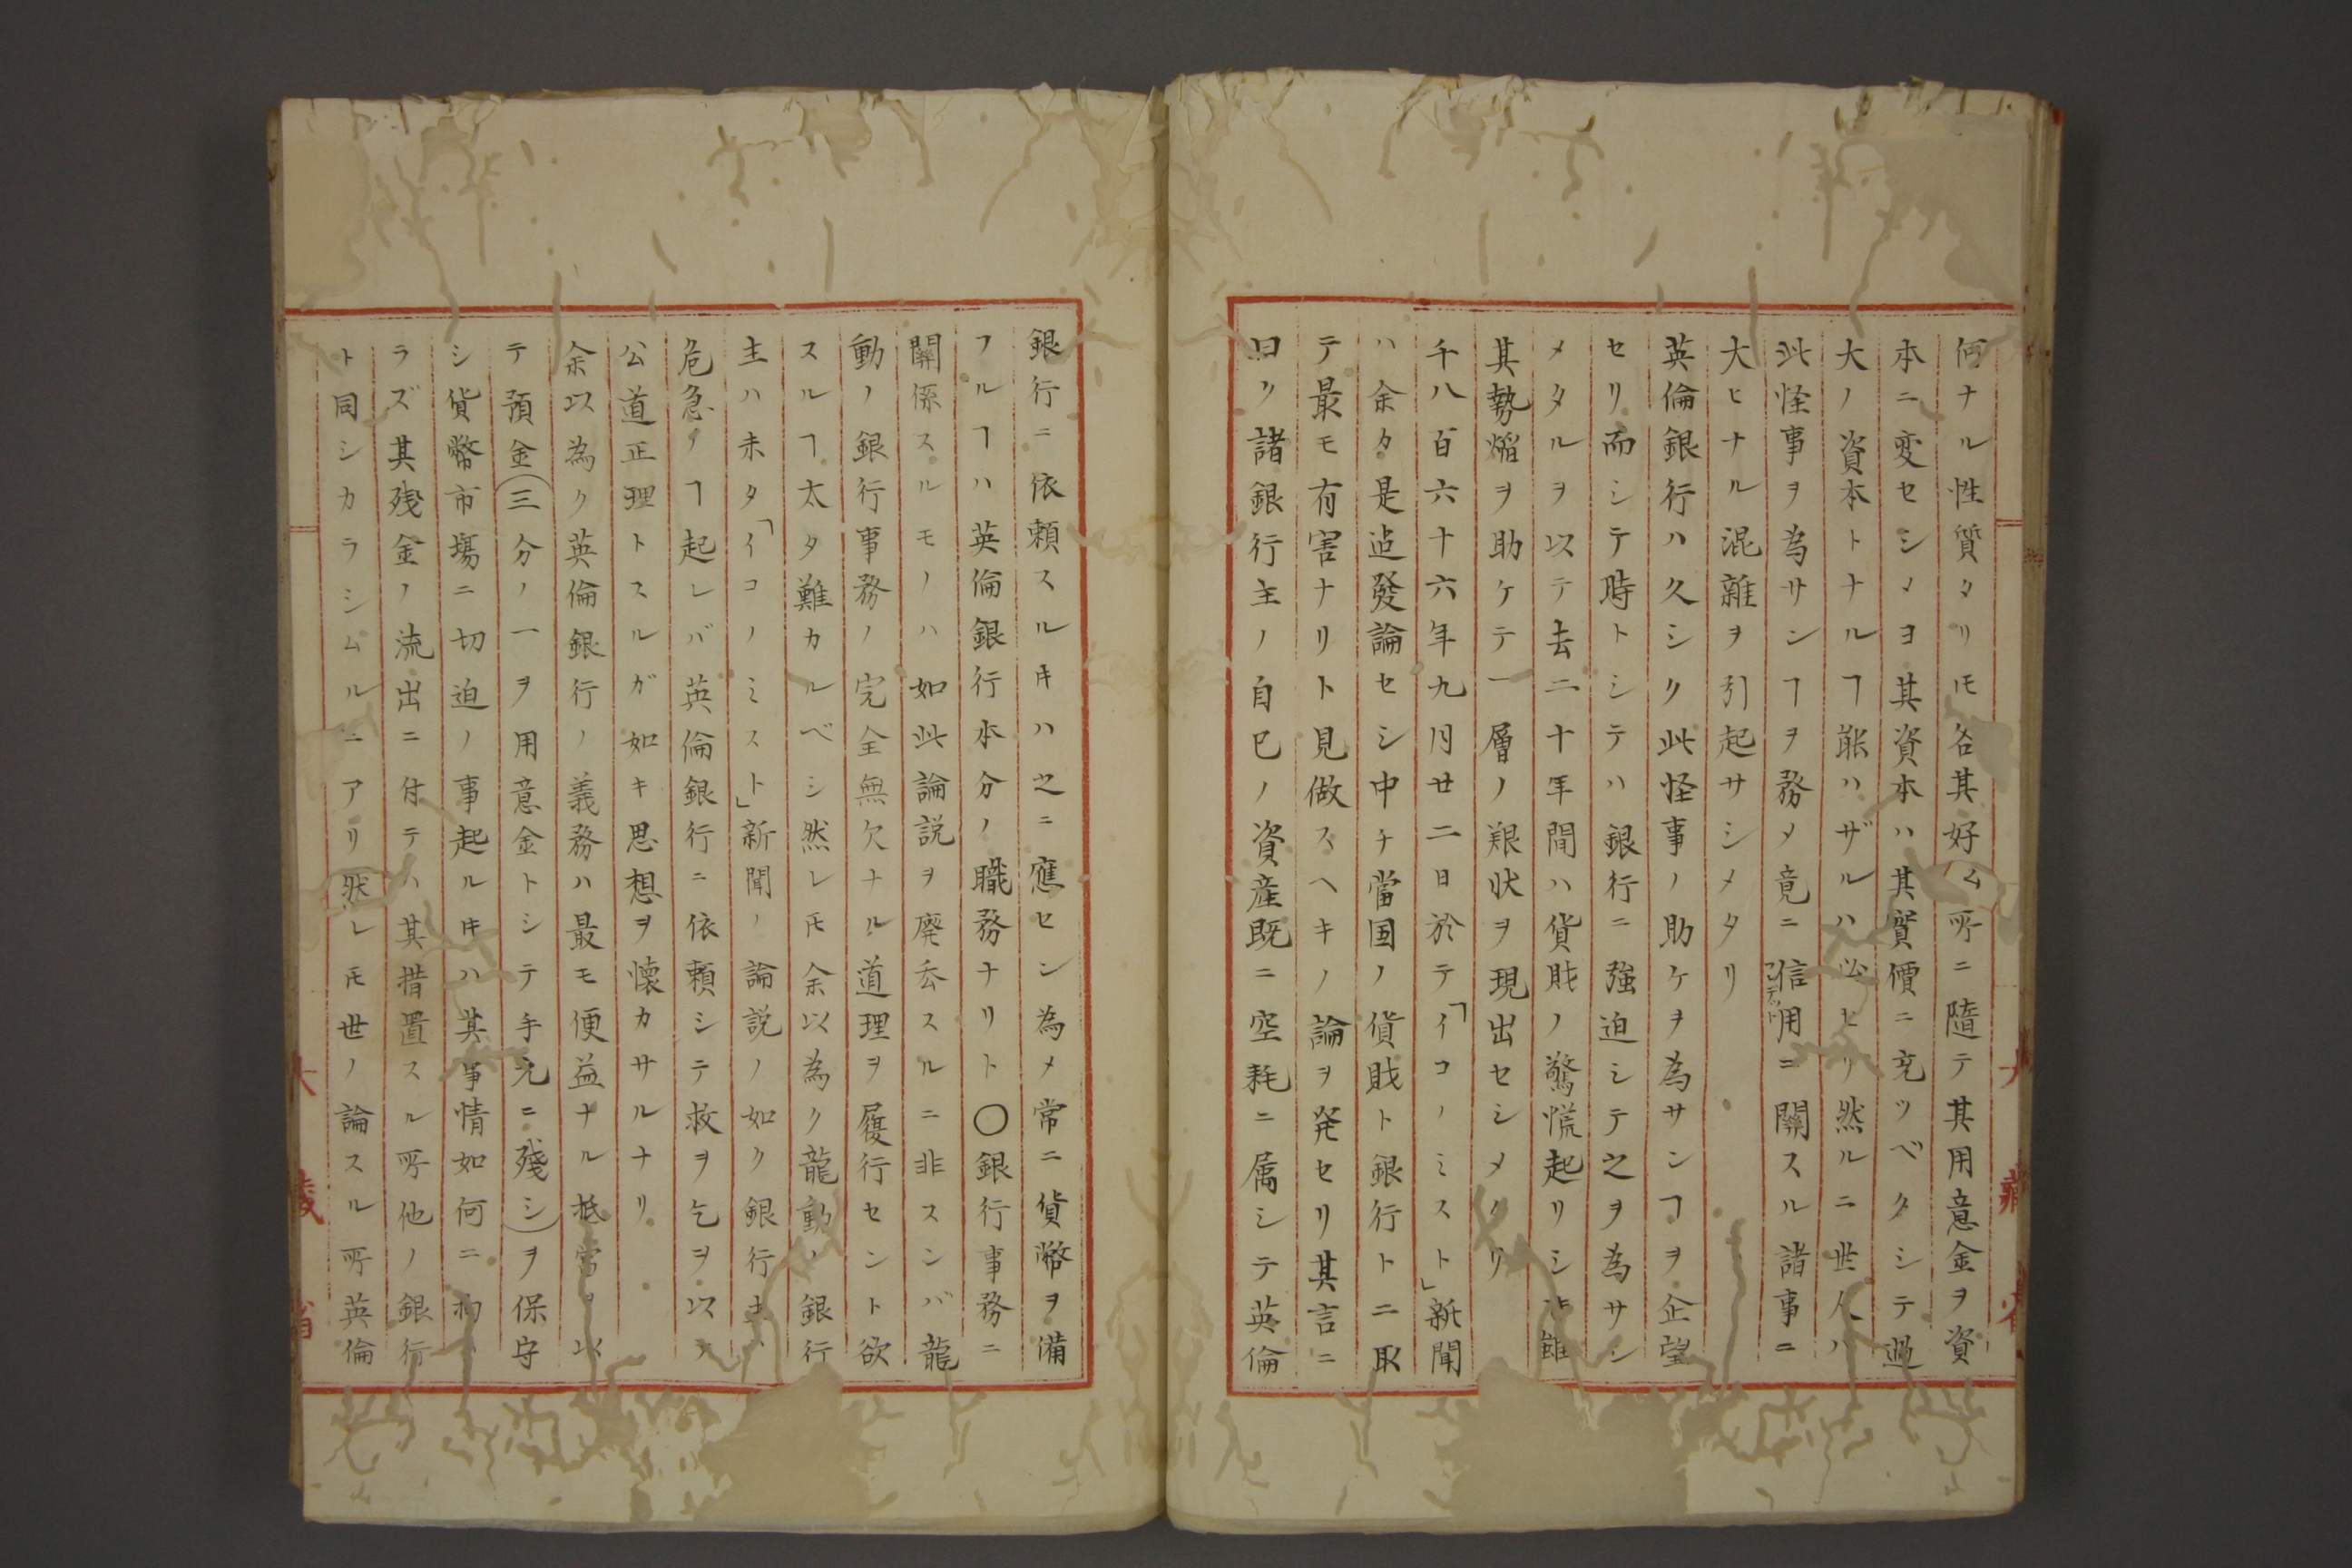 何ナル性質タリ𪜈各其好ム所ニ隨テ其用意金ヲ資
本ニ変セシメヨ其資本ハ其實價ニ充ツベクシテ過
大ノ資本トナルヿ能ハザルハ必セリ然ルニ世人ハ
此怪事ヲ為サンヿヲ務メ竟ニ信用ニ關スル諸事ニ
大ヒナル混雜ヲ引起サシメタリ
英倫銀行ハ久シク此怪事ノ助ケヲ為サンヿヲ企望
セリ而シテ時トシテハ銀行ニ強迫シテ之ヲ為サシ
メタルヲ以テ去二十年間ハ貨財ノ驚慌起リシ
其勢焰ヲ助ケテ一層ノ艱状ヲ現出セシメタリ
千八百六十六年九月廿二日於テ「イコノミスト」新聞
ハ余タ是迠發論セシ中チ當国ノ貨財ト銀行トニ取
テ最モ有害ナリト見做スヘキノ論ヲ発セリ其言ニ
曰ク諸銀行主ノ自己ノ資産既ニ空耗ニ属シテ英倫
銀行ニ依頼スル𪜈ハ之ニ應セン為メ常ニ貨幣ヲ備
フルヿハ英倫銀行本分ノ職務ナリト〇銀行事務ニ
關係スルモノハ如此論説ヲ廃委スルニ非スンバ龍
動ノ銀行事務ノ完全無欠ナル道理ヲ履行セント欲
スルヿ太タ難カルベシ然レ𪜈余以為ク龍動ノ銀行
主ハ未タ「イコノミスト」新聞ノ論説ノ如ク銀行主ハ
危急ノヿ起レバ英倫銀行ニ依頼シテ救ヲ乞ヲ以テ
公道正理トスルガ如キ思想ヲ懐カサルナリ
余以為ク英倫銀行ノ義務ハ最モ便益ナル抵當ヲ以
テ預金(三分ノ一ヲ用意金トシテ手元ニ残シ)ヲ保守
シ貨幣市場ニ切迫ノ事起ル𪜈ハ其事情如何ニ拘ハ
ラズ其残金ノ流出ニ付テハ其措置スル所他ノ銀行
ト同シカラシムルニアリ然レ𪜈世ノ論スル所英倫
大藏省